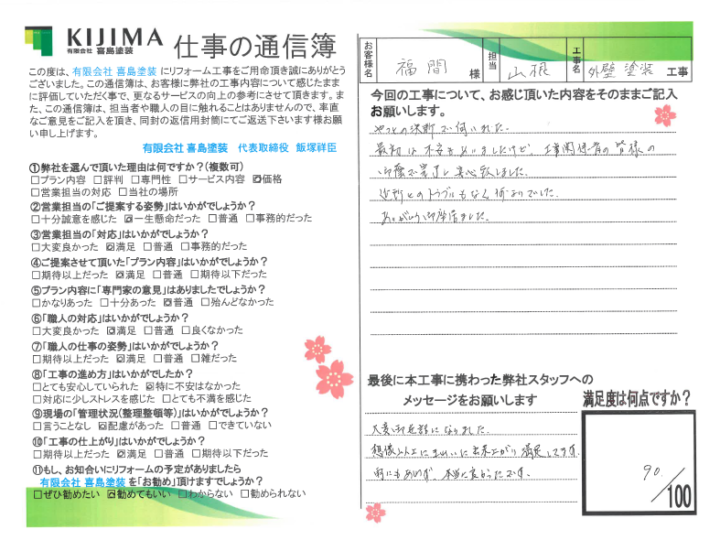 KIJIMA
有限会社 喜島塗装
仕事の通信簿
この度は、有限会社 喜島塗装 にリフォーム工事をご用命頂き誠にありがとう
ございました。この通信簿は、お客様に弊社の工事内容について感じたまま
に評価していただく事で、更なるサービスの向上の参考にさせて頂きます。ま
た、この通信簿は、担当者や職人の目に触れることはありませんので、率直
なご意見をご記入を頂き、同封の返信用封筒にてご返送下さいます様お願
い申し上げます。
有限会社 喜島塗装 代表取締役 飯塚祥臣
①弊社を選んで頂いた理由は何ですか?(複数可)
□プラン内容 □評判 □専門性 □サービス内容 ☑価格
□営業担当の対応 □当社の場所
②営業担当の「ご提案する姿勢」はいかがでしょうか?
□十分誠意を感じた ☑一生懸命だった □普通 □事務的だった
③営業担当の「対応」はいかがでしょうか?
□大変良かった ☑満足 □普通 □事務的だった
④ご提案させて頂いた「プラン内容」はいかがでしょうか?
□期待以上だった ☑満足 □普通 □期待以下だった
⑤プラン内容に「専門家の意見」はありましたでしょうか?
□かなりあった □十分あった ☑普通 □殆んどなかった
⑥「職人の対応」はいかがでしょうか?
□大変良かった ☑満足 □普通 □良くなかった
⑦「職人の仕事の姿勢」はいかがでしょうか?
□期待以上だった ☑満足 □普通 □雑だった
⑧「工事の進め方」はいかがでしたか?
□とても安心していられた ☑特に不安はなかった
□対応に少しストレスを感じた □とても不満を感じた
⑨現場の「管理状況(整理整頓等)」はいかがでしょうか?
□言うことなし ☑配慮があった □普通 □できていない
⑩「工事の仕上がり」はいかがでしょうか?
□期待以上だった ☑満足 □普通 □期待以下だった
⑪もし、お知合いにリフォームの予定がありましたら
有限会社 喜島塗装 を「お勧め」頂けますでしょうか?
□ぜひ勧めたい ☑勧めてもいい □わからない □勧められない
お客様名 福間 様 担当 山根 工事名 外壁塗装 工事
今回の工事について、お感じ頂いた内容をそのままご記入
お願いします。
最初は不安もありましたけど、工事関係者の皆様の
近所とのトラブルもなく何よりでした。
最後に本工事に携わった弊社スタッフへの
メッセージをお願いします
大変お世話になりました。
想像以上にきれいに出来上がり満足してます。
満足度は何点ですか?
90
/100